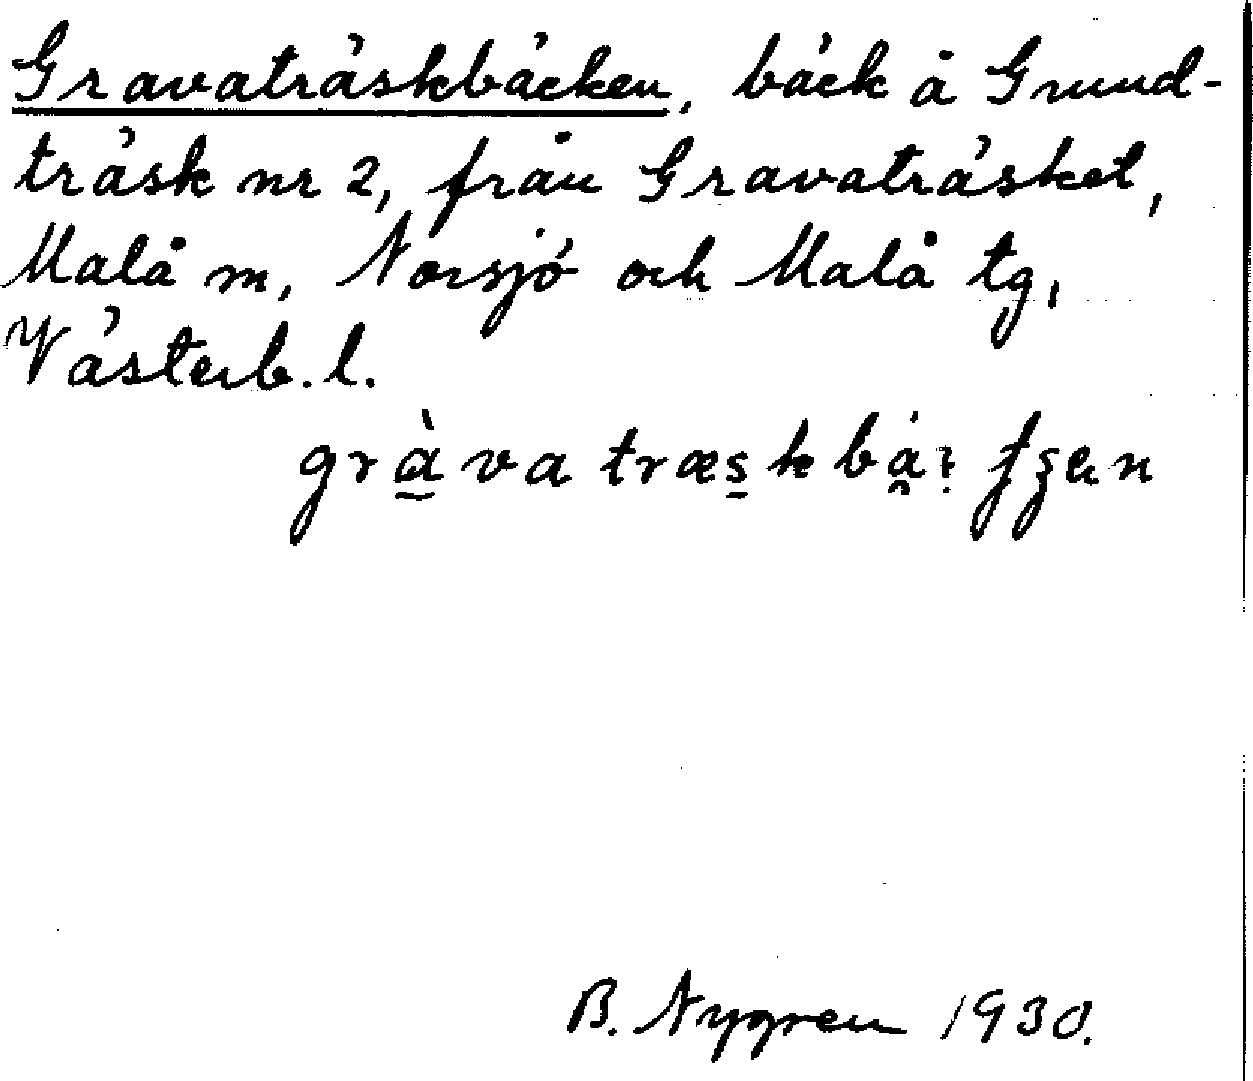 Gravaträskbäcken, bäck å Grund-
träsk nr 2, från Gravaträsket,
Malå m, Norsjö och Malå tg,
Västerb. l.
B. Nygren 1930.